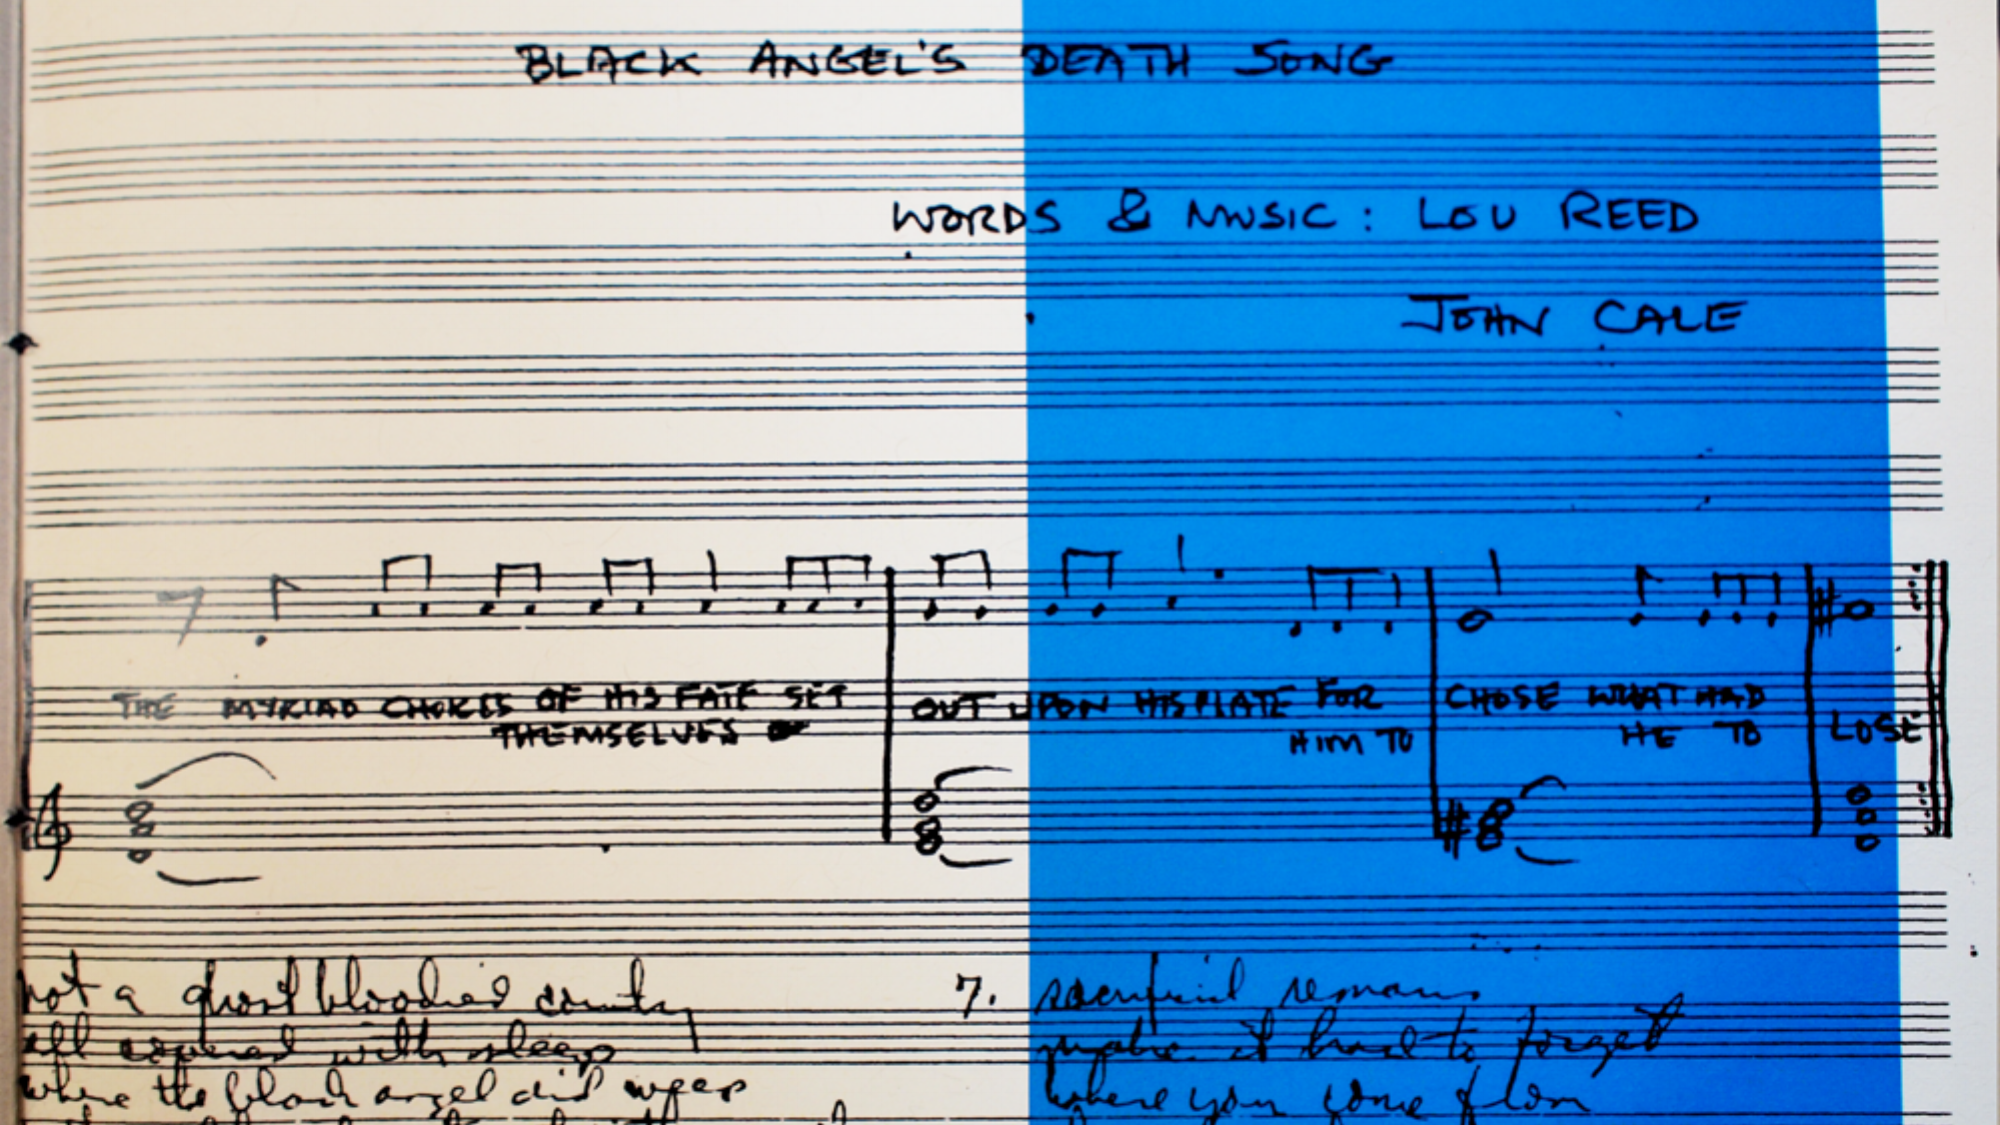 BLACK ANGEL'S DEATH SONG
WORDS & MUSIC: LOU REED
JOHN CALE
THE MYRIAD CHOICES OF HIS FATE SET OUT UPON HIS PLATE FOR CHOSE WHAT HAD
THEMSELVES HIM TO HE TO LOSE
not a ghost bloodied country
all covered with sleep
where the black angel did weep
7. sacrificial remains
make it hard to forget
where you come from